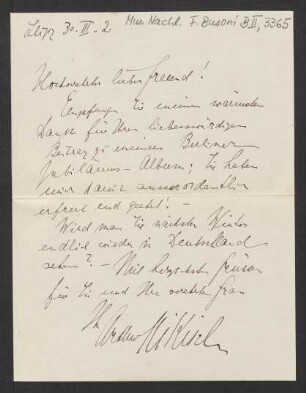 Lpzg 30. III. 2
Mus. Nachl. F. Busoni B II, 3365
Hochverehrter lieber Freund!
Empfangen Sie meinen wärmsten
Dank für Ihren liebenswürdigen
Beitrag zu meinem Berliner
Jubiläums-Album; Sie haben
mir damit ausserordentlich
erfreut und geehrt! –
Wird man Sie nächsten Winter
endlich wieder in Deutschland
sehen? – Mit herzlichsten Grüssen
für Sie und Ihre verehrte Frau
Ihr
Arthur Nikisch